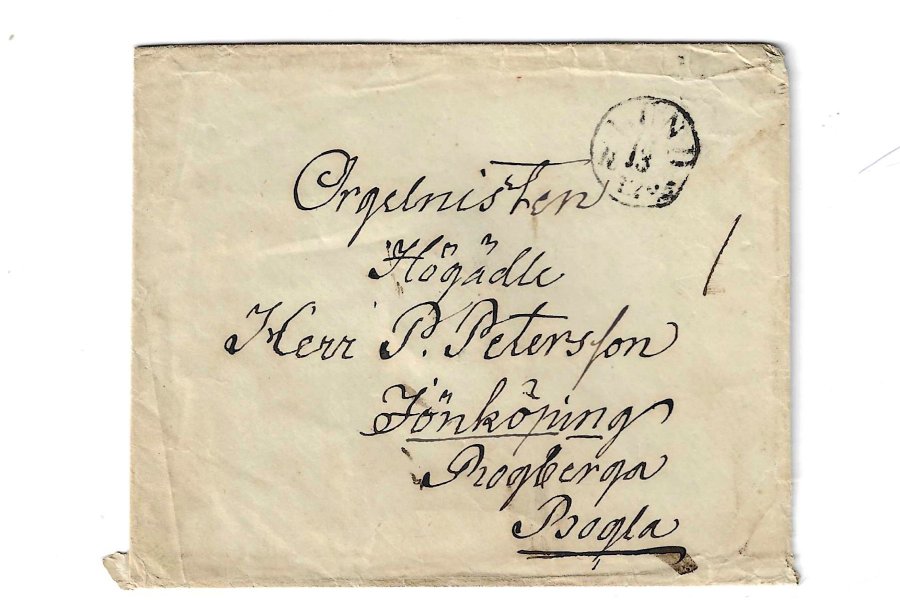 LUND
13
Orgelnisten
Högädle
Herr P. Petersson
Jönköping
Rogberga
Bogla